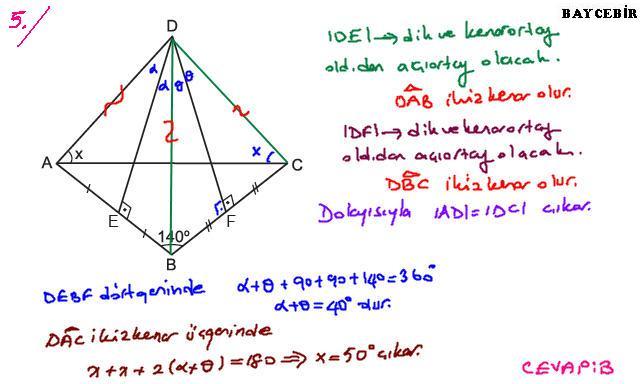 5./
BAYCEBİR
D
α
α
θ
θ
A
x
x
C
E
F
140°
B
|DE| → dik ve kenarortay
old.dan açıortay olacak.
DAB ikizkenar olur.
|DF| → dik ve kenarortay
old.dan açıortay olacak.
DBC ikizkenar olur.
Dolayısıyla |AD| = |DC| çıkar.
DEBF dörtgeninde α+θ+90+90+140=360°
α+θ=40° dur.
DAC ikizkenar üçgeninde
x+x+2(α+θ)=180 ⇒ x=50° çıkar.
CEVAP:B